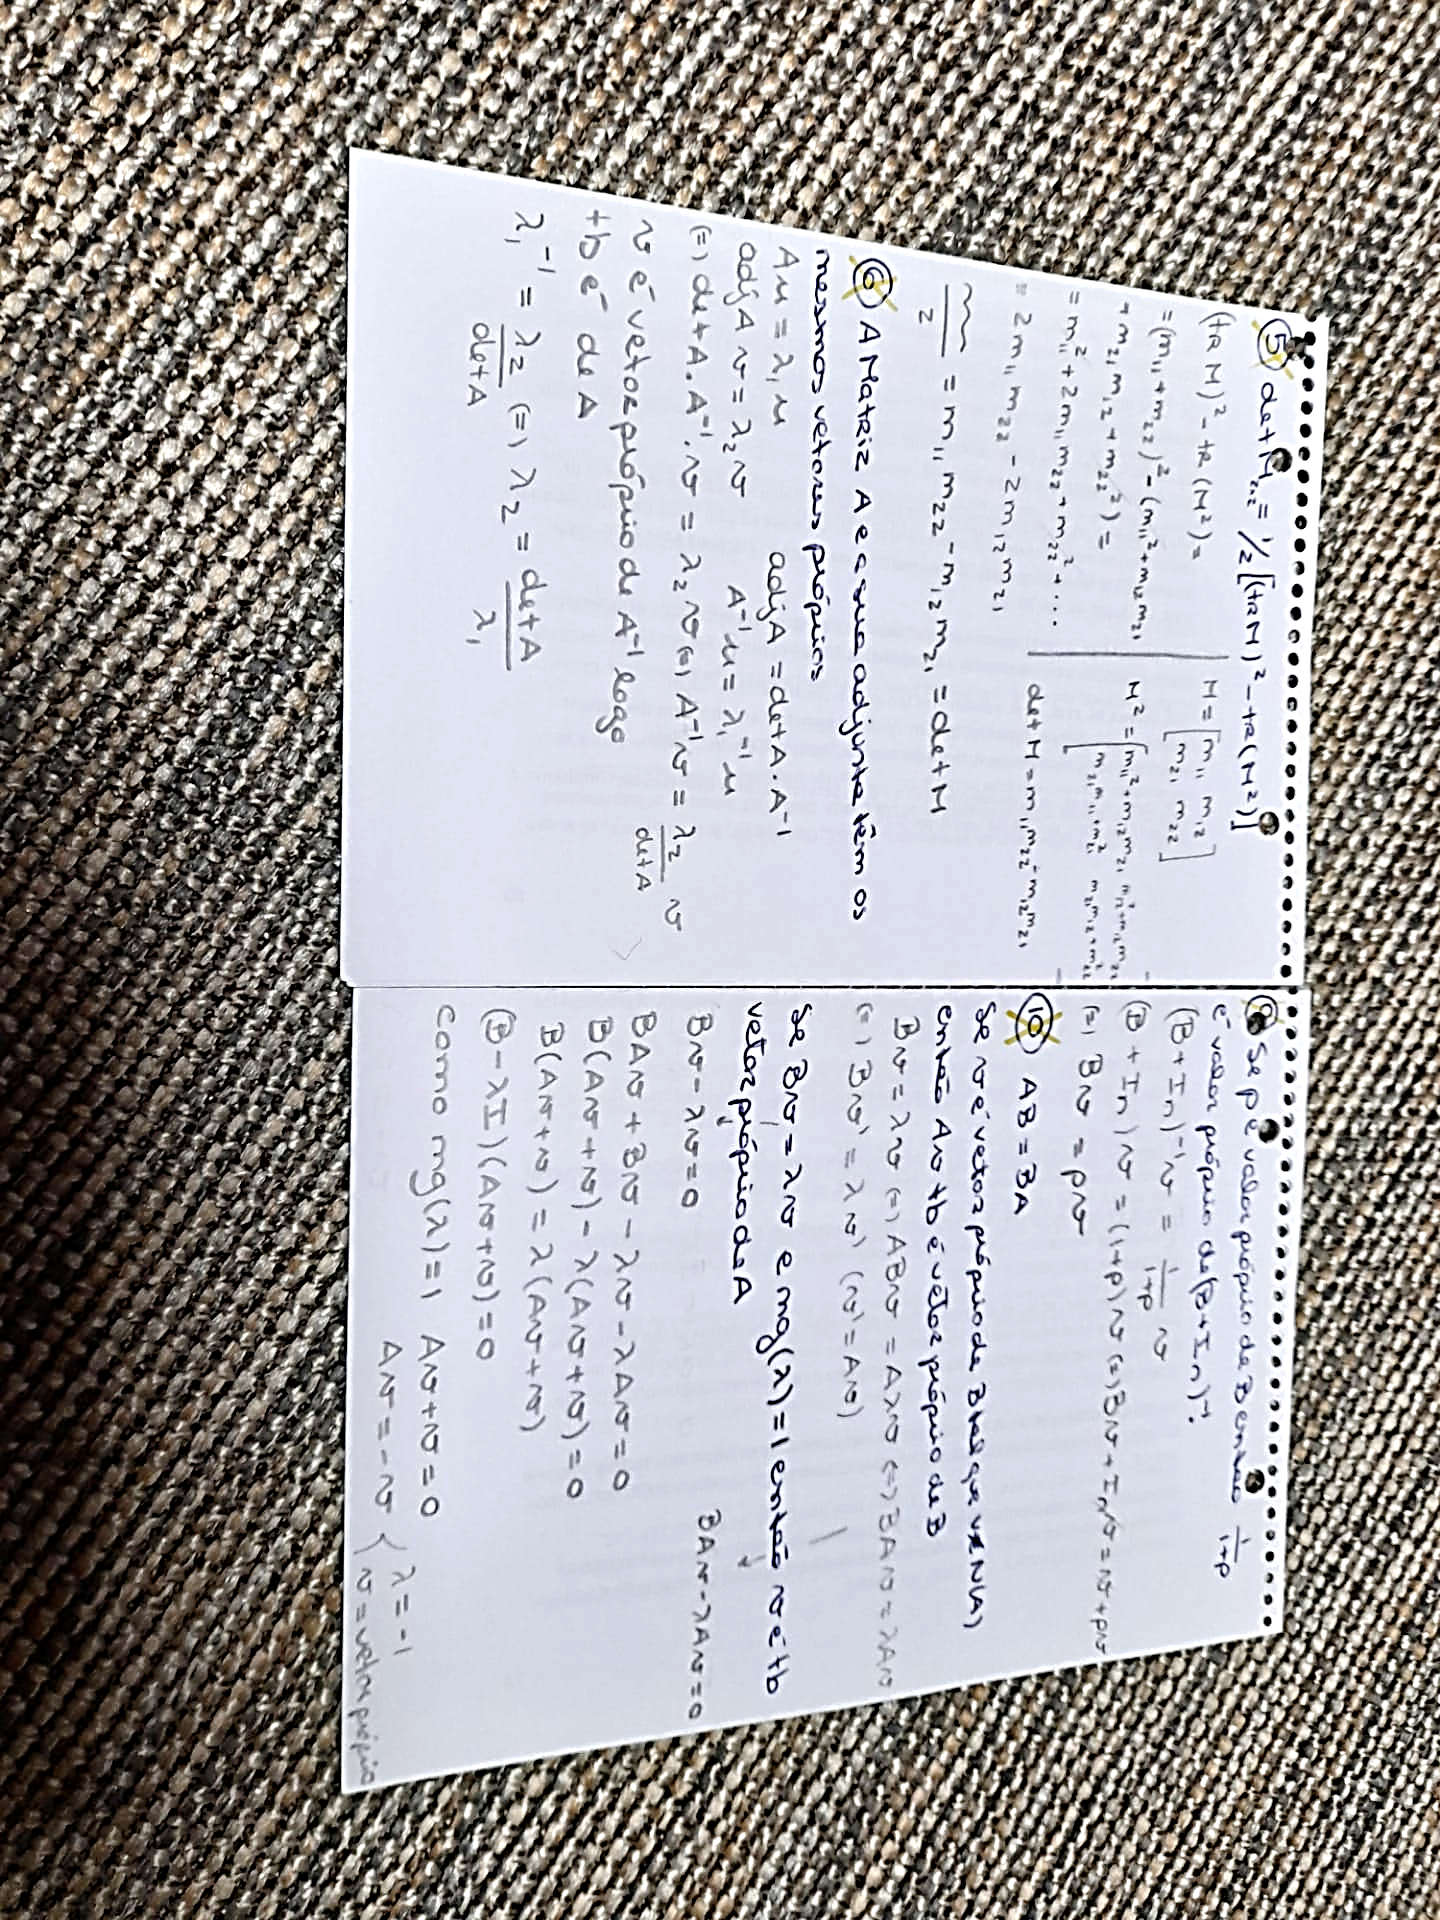 ⑤ det M₂,₂ = 1/2 [(tR M)² - tR(M²)]
(tR M)² - tR(M²) =
= (m₁₁ + m₂₂)² - (m₁₁² + m₁₂ m₂₁
+ m₂₁ m₁₂ + m₂₂²) =
= m₁₁² + 2 m₁₁ m₂₂ + m₂₂² + ...
= 2 m₁₁ m₂₂ - 2 m₁₂ m₂₁
M = [m₁₁ m₁₂
m₂₁ m₂₂]
M² = [m₁₁² + m₁₂ m₂₁
m₂₁ m₁₂ + m₂₂²
det M = m₁₁ m₂₂ - m₁₂ m₂₁
/2 = m₁₁ m₂₂ - m₁₂ m₂₁ = det M
⑥ A Matriz A e a sua adjunta têm os
mesmos vetores próprios
Au = λ₁ u adjA = det A . A⁻¹
adj A v = λ₂ v A⁻¹ u = λ₁⁻¹ u
(=) det A . A⁻¹ . v = λ₂ v (=) A⁻¹ v = λ₂/det A v
v é vetor próprio de A⁻¹ logo
tb é de A
λ₁⁻¹ = λ₂/det A (=) λ₂ = det A/λ₁
Se p é valor próprio de B então 1/1+p
é valor próprio de (B + In)⁻¹.
(B + In)⁻¹ v = 1/1+p v
(B + In) v = (1+p) v (=) Bv + In v = v + pv
(=) Bv = pv
⑩ AB = BA
Se v é vetor próprio de B tal que v∉N(A)
então Av tb é vetor próprio de B
Bv = λv (=) ABv = Aλv (=) BAv = λAv
(=) Bv' = λv' (v' = Av)
Se Bv = λv e mg(λ) = 1 então v é tb
vetor próprio de A
Bv - λv = 0 BAv - λAv = 0
BAv + Bv - λv - λAv = 0
B(Av + v) - λ(Av + v) = 0
B(Av + v) = λ(Av + v)
(B - λI)(Av + v) = 0
como mg(λ) = 1 Av + v = 0
Av = -v { λ = -1
v = vetor próprio